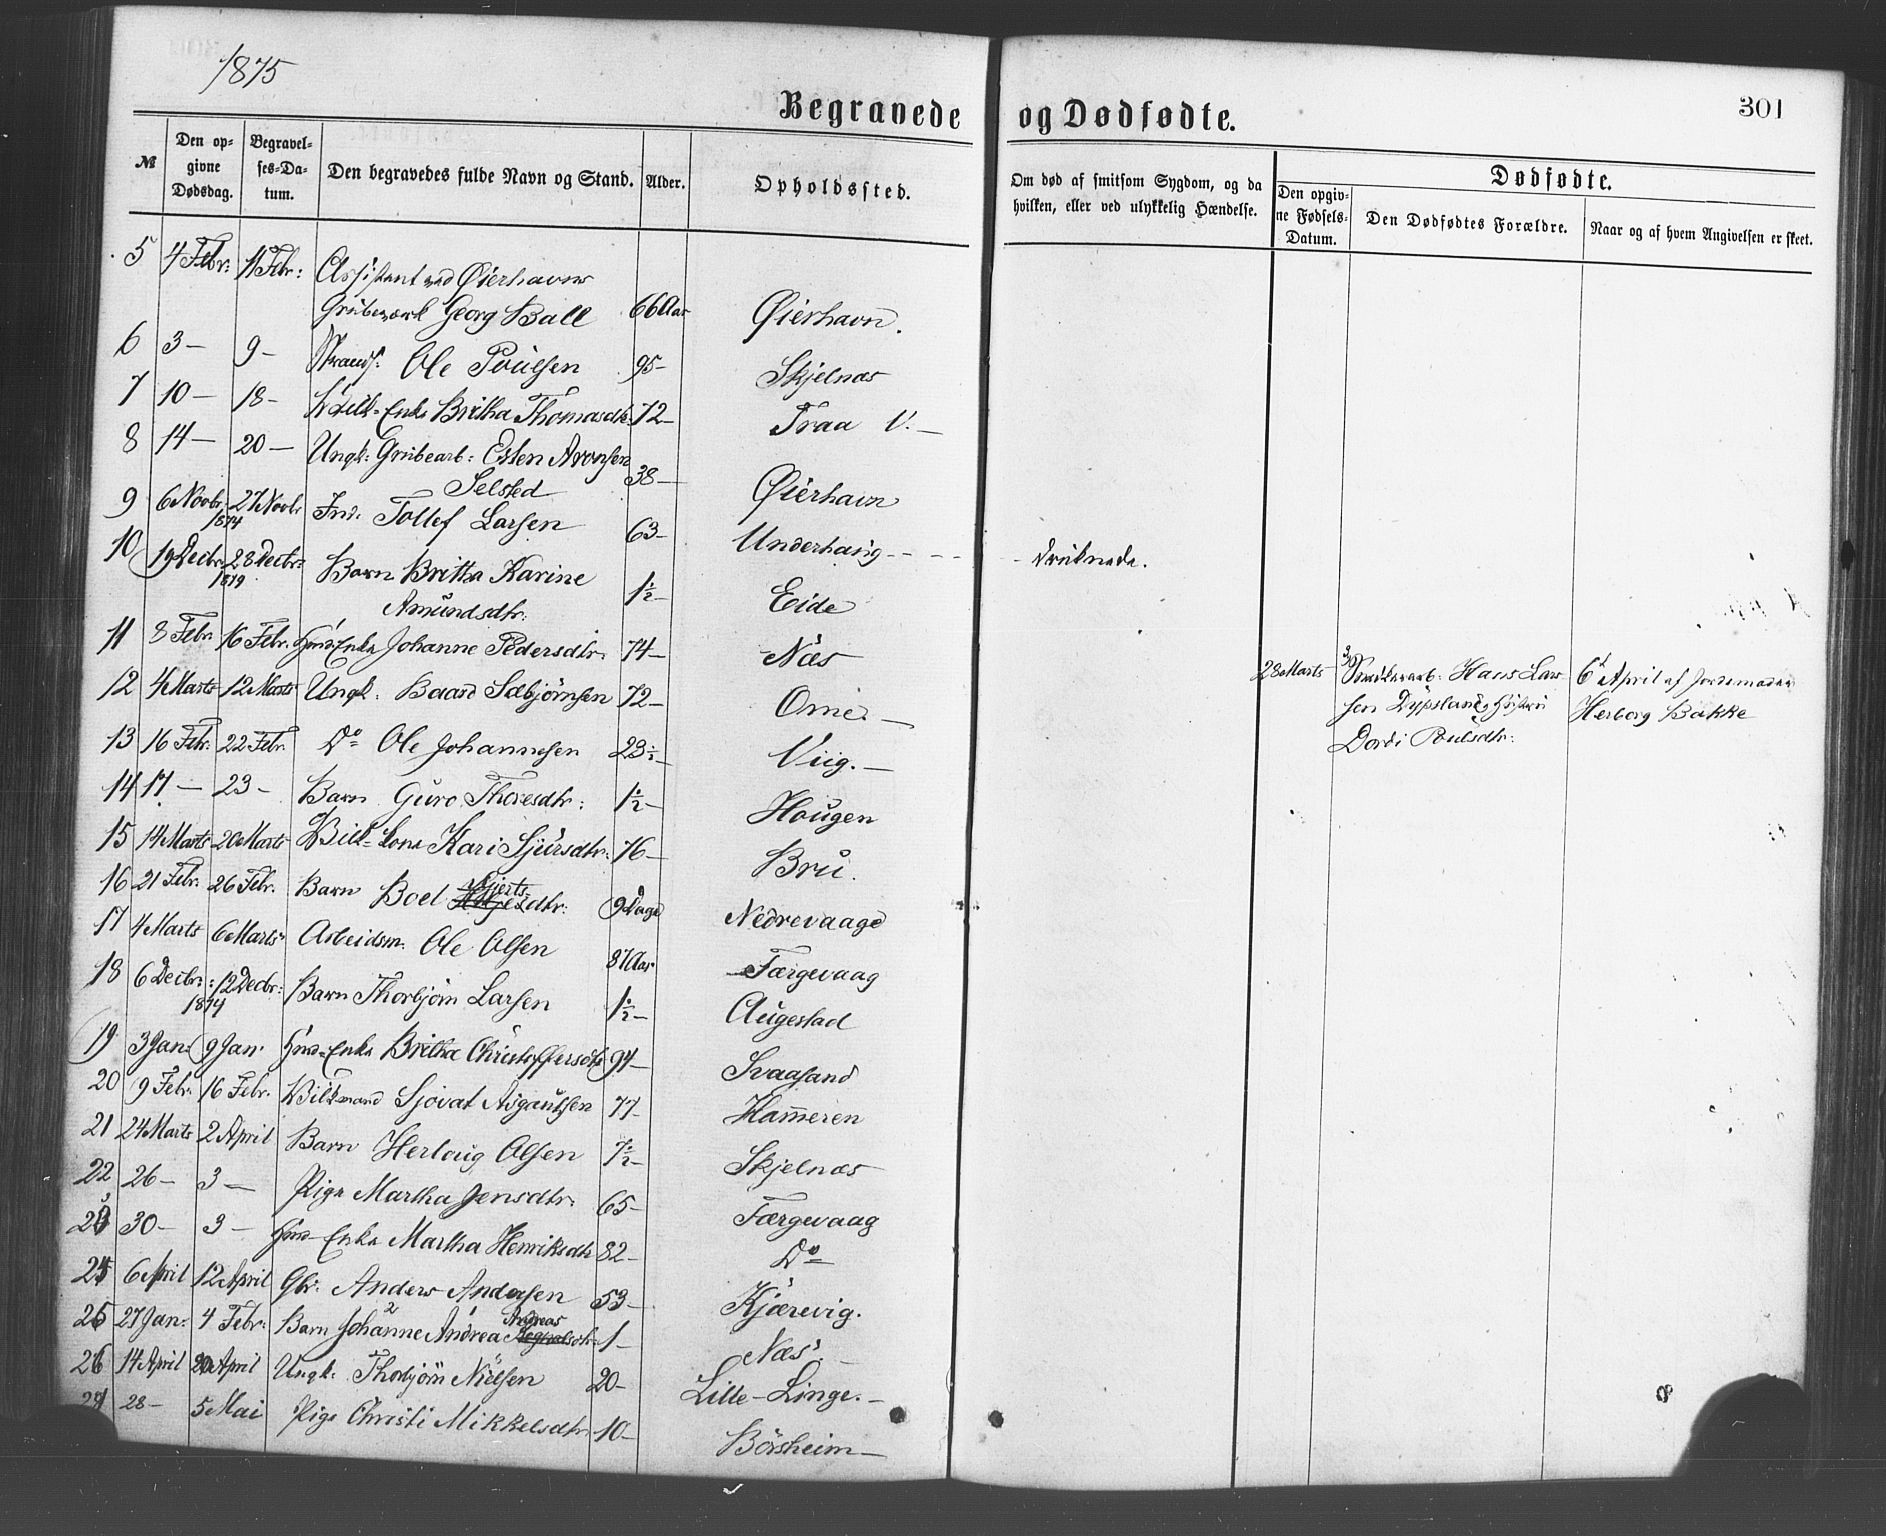 1875
Begravede og Dødfødte.
301
№ Den op- givne Dødsdag. Begravel- ses-Da- tum. Den begravedes fulde Navn og Stand. Alder. Opholdssted. Om død af smitsom Sygdom, og da hvilken, eller ved ulykkelig Hændelse. Dødfødte. Den opgiv- ne Fødsels- Datum. Den Dødfødtes Forældre. Naar og af hvem Angivelsen er skeet.
5 4 Febr: 11 Febr: Assistent ved Øierhavns
Grubeværk Georg Ball 66 Aar Øierhavn.
6 3 – 9 – Ole Poulsen 95 – Skjelnæs
7 10 – 18 – Enke Britha Thomasdtr. 72 – Traa V. –
8 14 – 20 – Ungk: Grubearb: Esten Aronsen
Selsted 38 – Øierhavn
9 6 Novbr. 27 Novbr. 1874 Ind. Tollef Larsen 63 – Underhaug - - - - druknede.
10 19 Decbr. 28 Decbr. Barn Britha Karine
Amundsdtr. 1½ – Eide
11 8 Febr. 16 Febr. Enke Johanne Pedersdtr. 74 – Næs
12 4 Marts 12 Marts Ungk. Baard Sæbjörnsen 72 – Ome. –
28 Marts Hans Lar-
sen Dypsland og Hustru
Dordi Poulsdtr:
6 April af Jordemoder
Herborg Bakke
13 16 Febr. 22 Febr. Do Ole Johannesen 23½ – Viig. –
14 17 – 23 – Barn Guro Thoresdtr: 1½ – Hougen
15 14 Marts 20 Marts Kone Kari Sjursdtr: 76 – Bru.
16 21 Febr. 26 Febr. Barn Boel dtr: 9 Dage Nedrevaage
17 4 Marts 6 Marts Arbeidsm. Ole Olsen 87 Aar Færgevaag
18 6 Decbr: 12 Decbr: 1874 Barn Thorbjörn Larsen 1½ – Augestad
19 3 Jan. 9 Jan. Enke Britha Christoffersdtr 94 – Svaasand
20 9 Febr. 16 Febr. Sjovat Asgautsen 77 – Hammeren
21 24 Marts 2 April Barn Herloug Olsen 7½ – Skjelnæs
22 26 – 3 – Pige Martha Jensdtr. 65 – Færgevaag
23 30 – 3 – Enke Martha Henriksdtr 82 – Do
24 6 April 12 April Gbr. Anders Andersen 53 – Kjærevig.
25 27 Jan: 4 Febr: Barn Johanne Andrea Andreas dtr. 1 – Næs. –
26 14 April 20 April Ungk: Thorbjörn Nilsen 20 – Lille-Linge. –
27 28 – 5 Mai Pige Christi Mikkelsdtr. 10 – Börsheim –